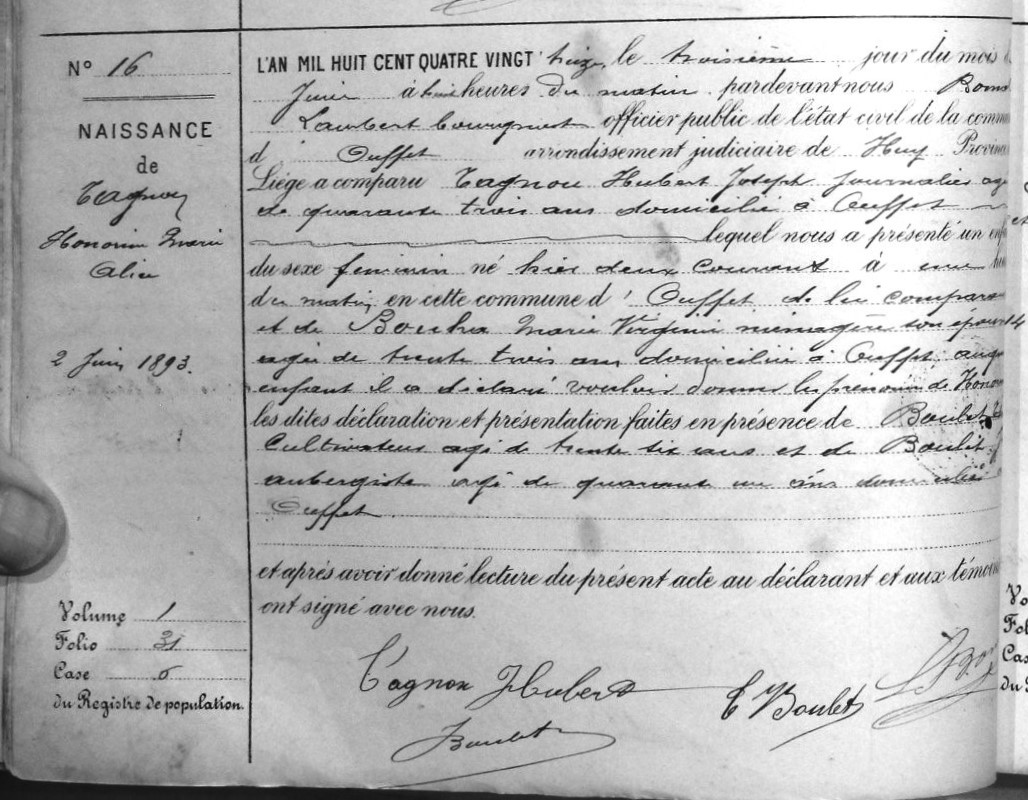 N° 16
NAISSANCE
de
Tagnon
Honorine Marie
Alice
2 Juin 1893.
Volume 1
Folio 31
Case 6
du Registre de population.
L'AN MIL HUIT CENT QUATRE VINGT treize, le troisième jour du mois
Juin à huit heures du matin pardevant nous
Lambert officier public de l'état civil de la comm
d' Ouffet arrondissement judiciaire de Huy Provin
Liége a comparu Tagnon Hubert Joseph journalier ag
de quarante trois ans domicilié à Ouffet
lequel nous a présenté un enf
du sexe feminin né hier deux courant à une heu
du matin, en cette commune d' Ouffet de lui compara
et de Marie Virginie ménagère son épous
agée de trente trois ans domiciliée à Ouffet auqu
enfant il a déclaré vouloir donner les prénoms de Hono
les dites déclaration et présentation faites en présence de Boulet
Cultivateur agé de trente six ans et de Boulet
aubergiste agé de quarante un ans domiciliés
Ouffet.
et après avoir donné lecture du présent acte au déclarant et aux témoin
ont signé avec nous.
Tagnon Hubert
E Boulet
Boulet
Vo
Fol
Cas
du R